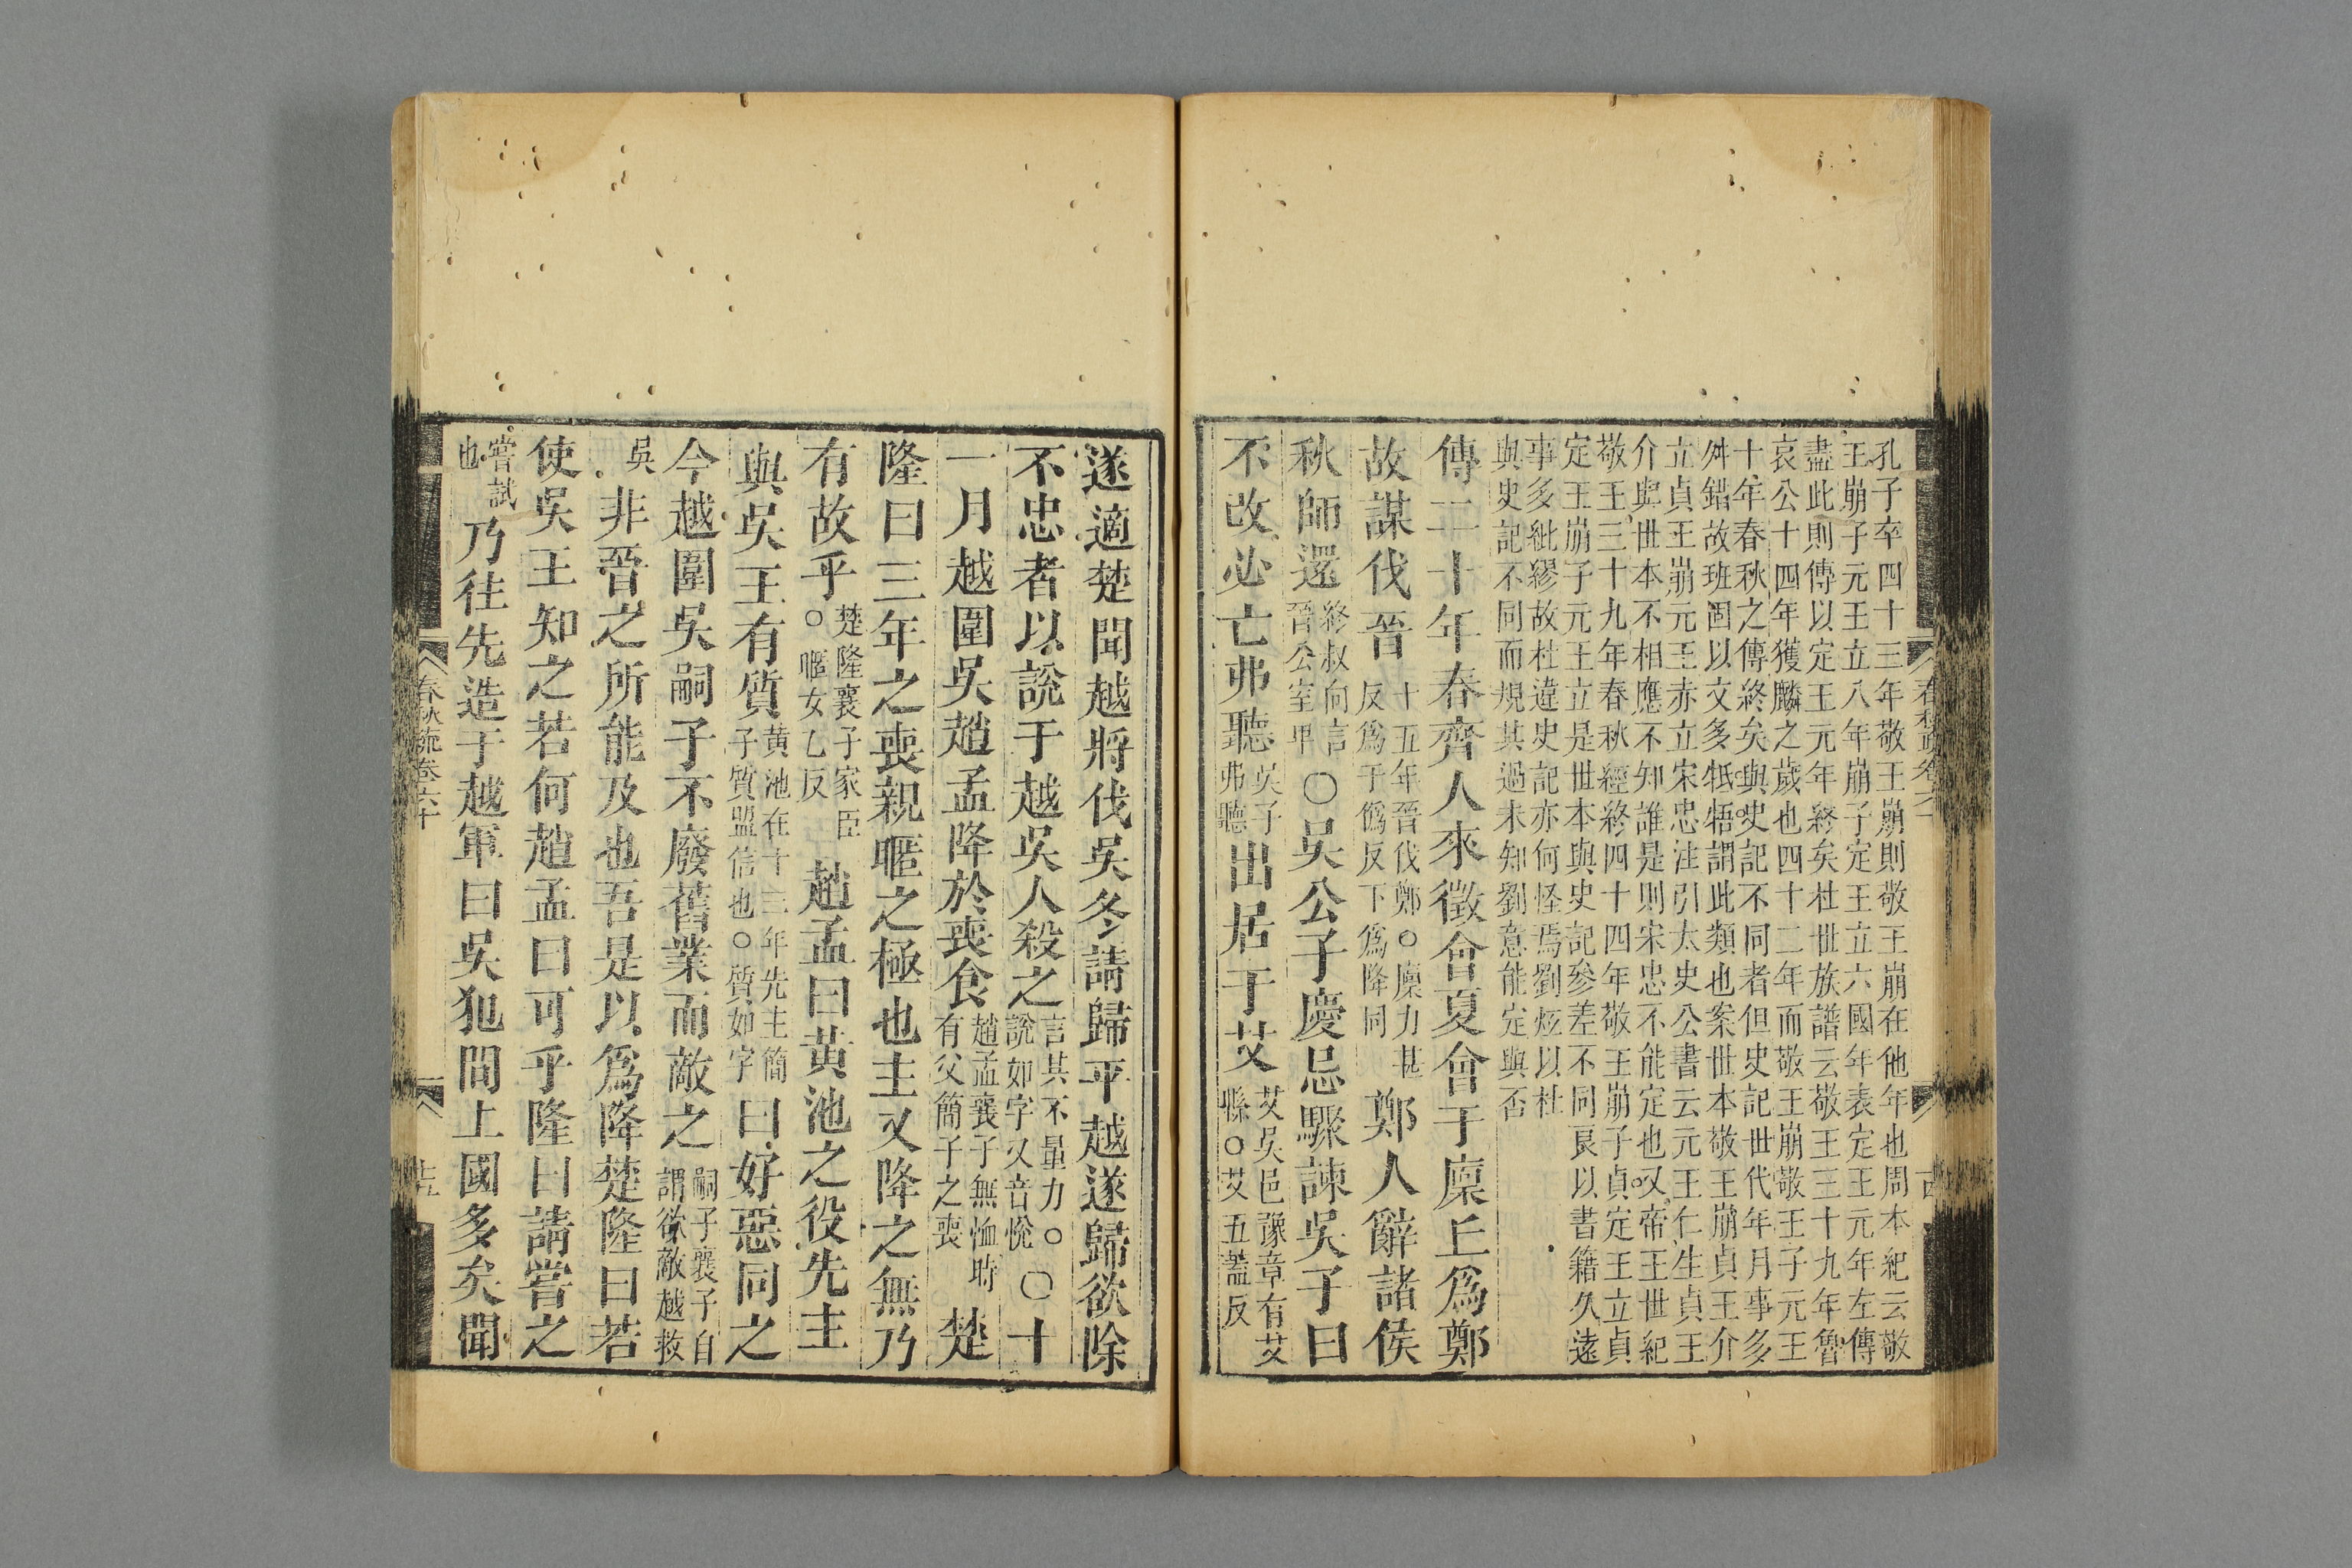 孔子卒四十三年敬王崩則敬王崩在他年也周本紀云敬
王崩子元王立八年崩子定王立六國年表定王元年左傳
盡此則傳以定王元年終矣杜世族譜云敬王三十九年魯
哀公十四年獲麟之歲也四十二年而敬王崩敬王子元王
十年春秋之傳終矣與史記不同者但史記世代年月事多
舛錯故班固以文多牴牾謂此類也案世本敬王崩貞王介
立貞王崩元王赤立宋忠注引太史公書云元王仁生貞王
介與世本不相應不知誰是則宋忠不能定也又帝王世紀
敬王三十九年春秋經終四十四年敬王崩子貞定王立貞
定王崩子元王立是世本與史記參差不同良以書籍久遠
事多紕繆故杜違史記亦何怪焉劉炫以杜
與史記不同而規其過未知劉意能定與否
傳二十年春齊人來徵會夏會于廩丘為鄭
故謀伐晉十五年晉伐鄭○廩力甚反為于僞反下為降同鄭人辭諸侯
秋師還終叔向言晉公室卑○吳公子慶忌驟諫吳子曰
不改必亡弗聽吳子弗聽出居于艾艾吳邑豫章有艾縣○艾五蓋反
遂適楚聞越將伐吳冬請歸平越遂歸欲除
不忠者以說于越吳人殺之言其不量力○說如字又音悅○十
一月越圍吳趙孟降於喪食趙孟襄子無恤時有父簡子之喪楚
隆曰三年之喪親暱之極也主又降之無乃
有故乎楚隆襄子家臣○暱女乙反趙孟曰黃池之役先主
與吳王有質黃池在十三年先主簡子質盟信也○質如字曰好惡同之
今越圍吳嗣子不廢舊業而敵之嗣子襄子自謂欲敵越救
吳非晉之所能及也吾是以為降楚隆曰若
使吳王知之若何趙孟曰可乎隆曰請嘗之
嘗試也乃往先造于越軍曰吳犯間上國多矣聞
春秋疏卷六十
十五